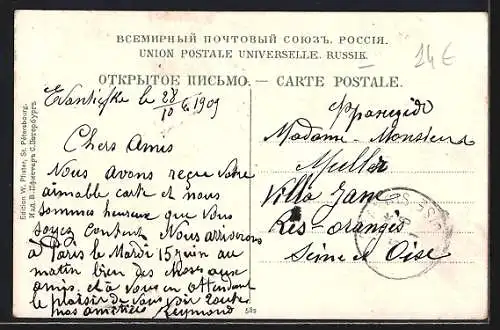 ВСЕМИРНЫЙ ПОЧТОВЫЙ СОЮЗЪ. РОССІЯ.
UNION POSTALE UNIVERSELLE. RUSSIE.
14€
ОТКРЫТОЕ ПИСЬМО. — CARTE POSTALE.
le 28/10 6 1909
Chers Amis
Nous avons reçue votre
aimable carte et nous
sommes heureux que vous
soyez content Nous arriverons
à Paris le Mardi 15 juin au
matin bien des choses aux
amis. et à vous en attendant
le plaisir de vous voir toutes
nos amitiés Reymond
Madame - Monsieur
Muller
Villa Jane
Les-oranges
Seine et Oise
589
Edition W. Pfister, St. Pétersbourg.
Изд. В. Пфистеръ С.Петербургъ.